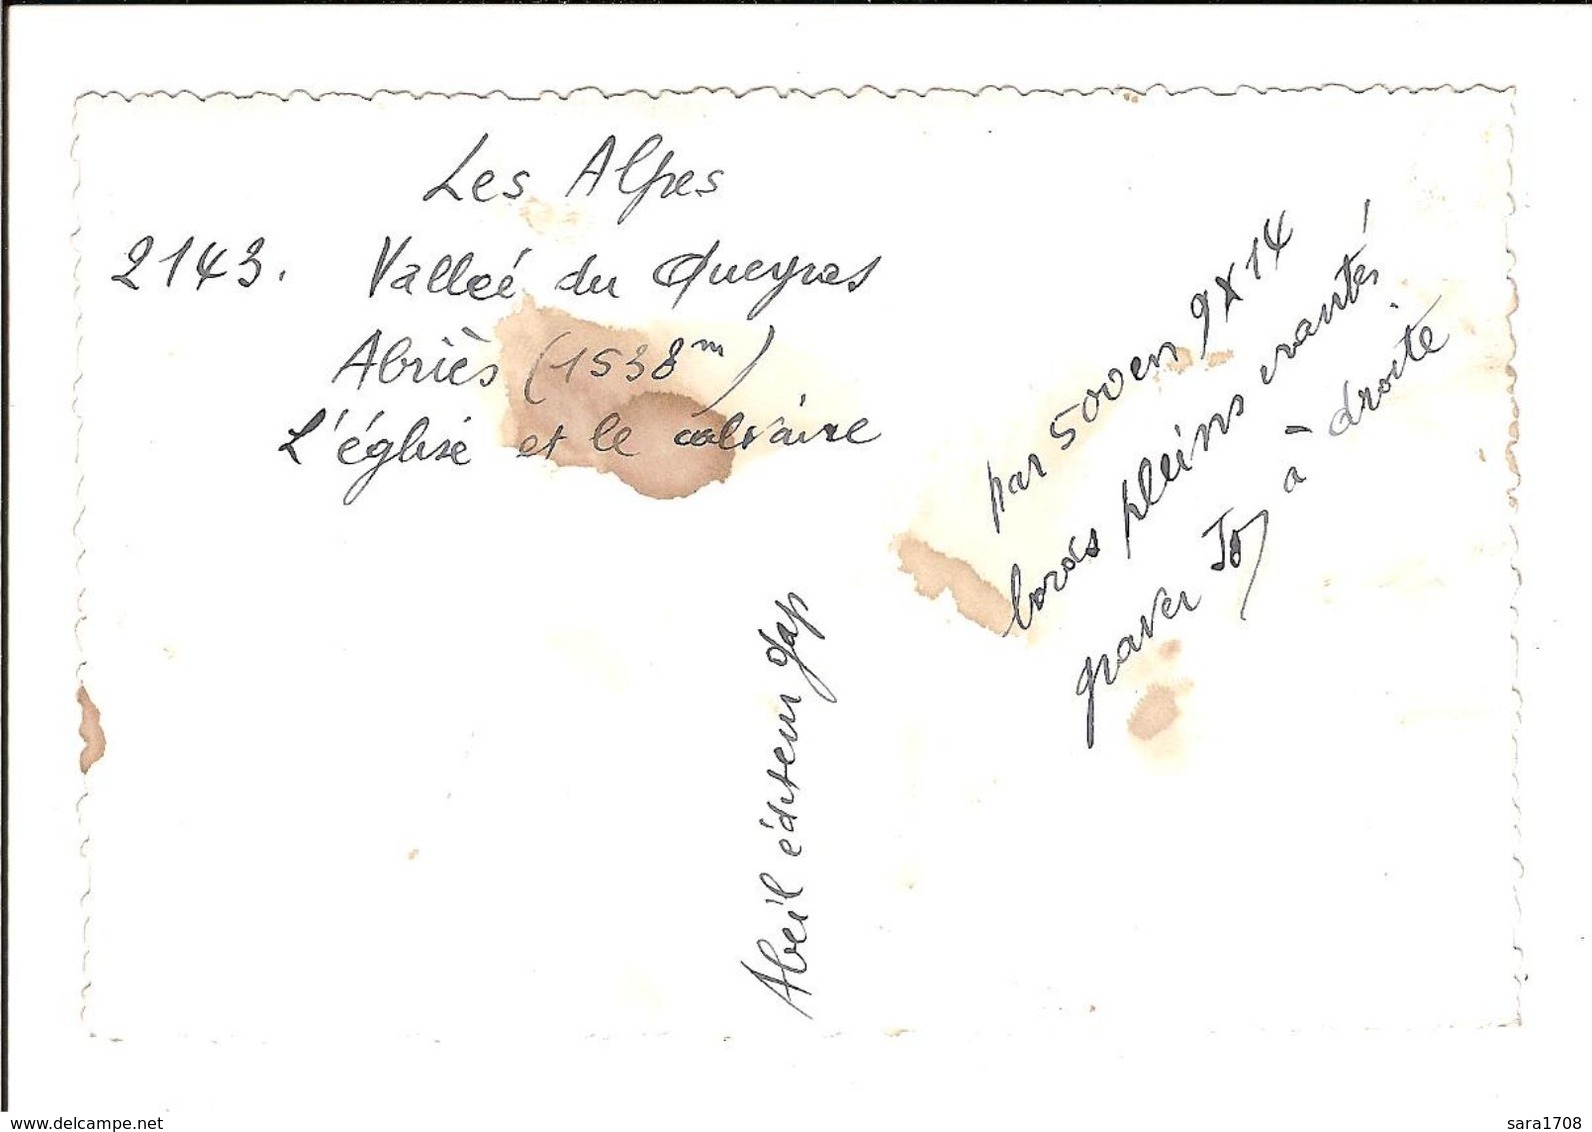 Les Alpes
2143. Valleé du Queyras
Abriès (1538m)
L'église et le calvaire
par 500 en 9X14
bords pleins crantés
graver Joy à droite
Abeil éditeur gap
www.delcampe.net
sara1708